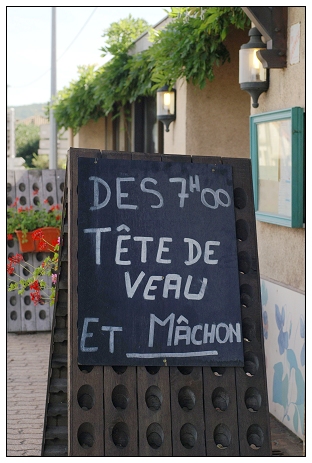 DES 7H00
TÊTE DE
VEAU
ET MÂCHON